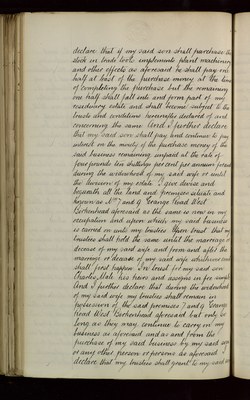 declare that if my said son shall purchase the
stock in trade tools implements plant machinery
and other effects as aforesaid he shall pay one
half at least of the purchase money at the time
of completing the purchase but the remaining
one half shall fall into and form part of my
residuary estate and shall become subject to the
trusts and conditions hereinafter declared of and
concerning the same And I further declare
that my said son shall pay and continue to pay
interest on the moiety of the purchase money of the
said business remaining unpaid at the rate of
four pounds ten shillings per cent per annum
during the widowhood of my said wife or until
the division of my estate I give devise and
bequeath all the land and premises situate and
known as Nos 7 and 9 Grange Road West
Birkenhead aforesaid as the same is now in my
occupation and upon which my said business
is carried on unto my trustees Upon trust that my
trustees shall hold the same until the marriage or
decease of my said wife and from and after the
marriage or decease of my said wife whichever event
shall first happen In trust for my said son
Charles his heirs and assigns in fee simple
And I further declare that during the widowhood
of my said wife my trustees shall remain in
possession of the said premises 7 and 9 Grange
Road West Birkenhead aforesaid but only so
long as they may continue to carry on my
business as aforesaid and as and from the
purchase of my said business by my said son
or any other person or persons as aforesaid I
declare that my trustees shall grant to my said son